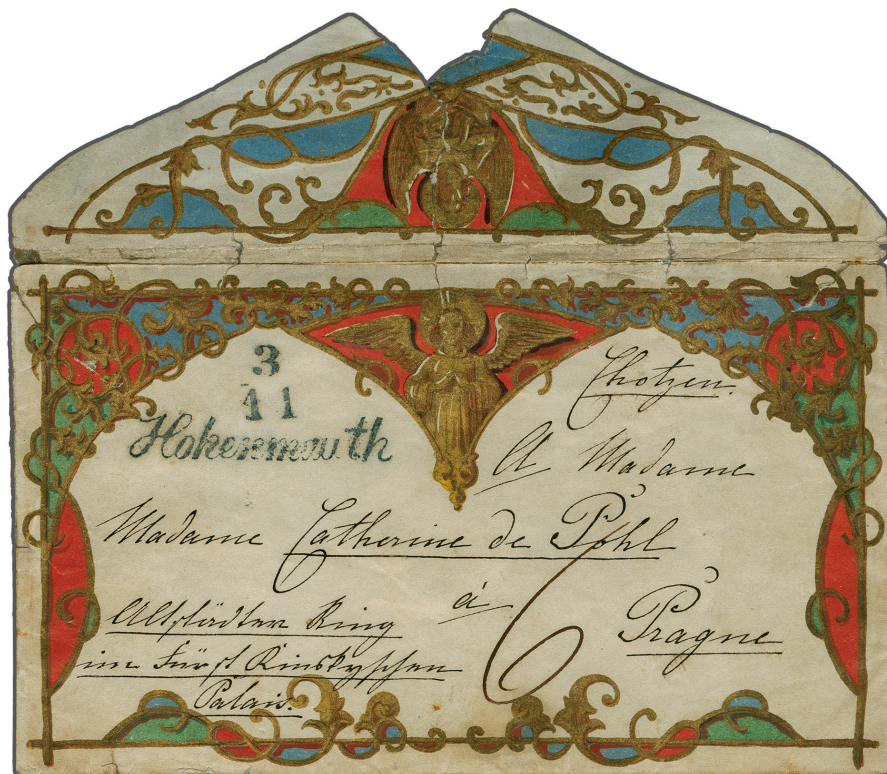 3
11
Hohenmauth
Chotzen.
A Madame
Madame Catherine de Pohl
à
Altstädter Ring
im Fürst Kinskyschen
Palais.
Prague
6